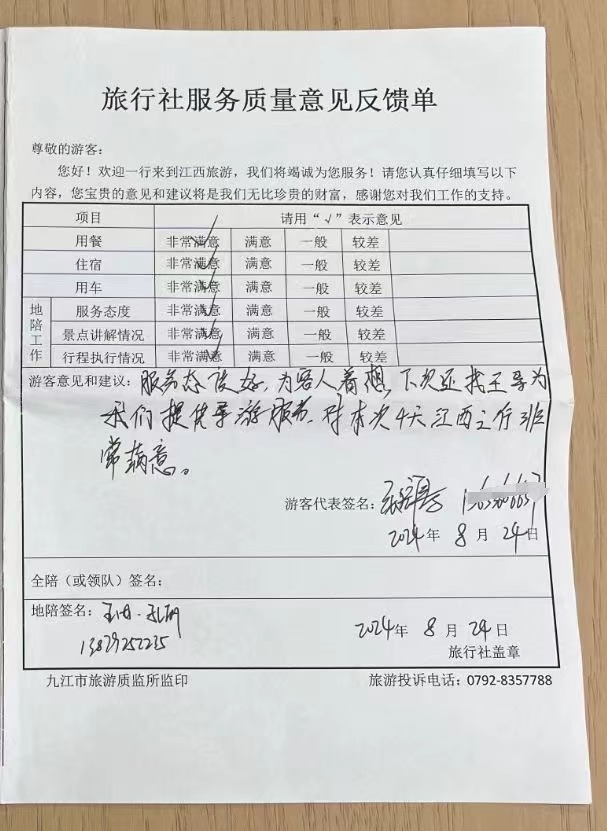 旅行社服务质量意见反馈单
尊敬的游客：
您好！欢迎一行来到江西旅游，我们将竭诚为您服务！请您认真仔细填写以下
内容，您宝贵的意见和建议将是我们无比珍贵的财富，感谢您对我们工作的支持。
项目 请用“√”表示意见
用餐 非常满意 满意 一般 较差
住宿 非常满意 满意 一般 较差
用车 非常满意 满意 一般 较差
地陪工作 服务态度 非常满意 满意 一般 较差
景点讲解情况 非常满意 满意 一般 较差
行程执行情况 非常满意 满意 一般 较差
游客意见和建议：服务态度好，为客人着想，下次还找王导为
我们提供导游服务，对本次4天江西之行非
常满意。
游客代表签名：
2024年 8 月 24 日
全陪（或领队）签名：
地陪签名：
2024年 8 月 24 日
旅行社盖章
九江市旅游质监所监印 旅游投诉电话：0792-8357788